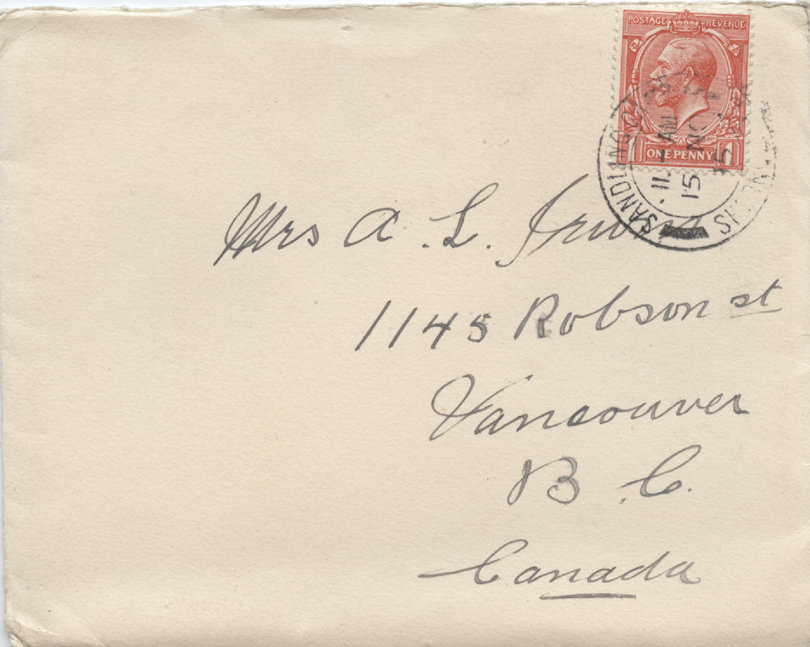 POSTAGE REVENUE
ONE PENNY
SANDLING
11 - AM
15 NO
15
Mrs A. L.
1145 Robson st
Vancouver
B. C.
Canada